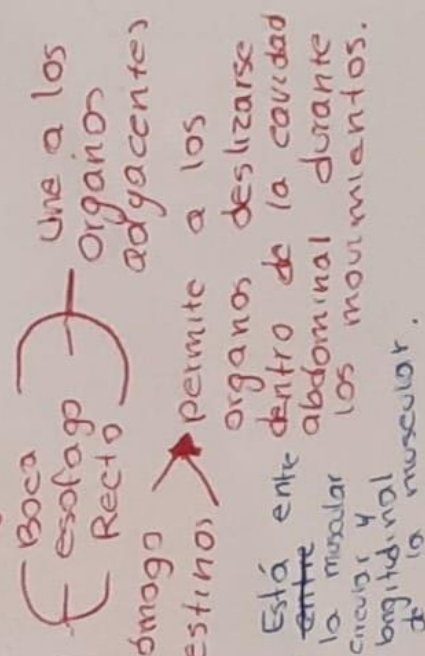 Boca
esofago
Recto
Une a los
organos
adyacentes
ómago
estinos
permite a los
organos deslizarse
dentro de la cavidad
abdominal durante
los movimientos.
Está ente
entre
la muscular
circular y
longitudinal
de la muscular.